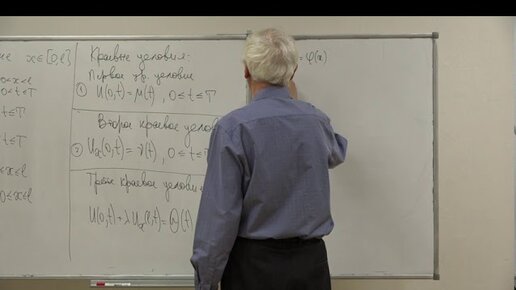 x∈[0,ℓ]
0<x<ℓ
0<t≤T
t≤T
t≤T
0≤x≤ℓ
Краевые условия:
Первое кр. условие
① U(0,t)=μ(t), 0≤t≤T
Второе краевое услов
② Uₓ(0,t)=ν(t), 0≤t≤T
Третье краевое услови
U(0,t)+λUₓ(0,t)=Θ(t)
=φ(x)